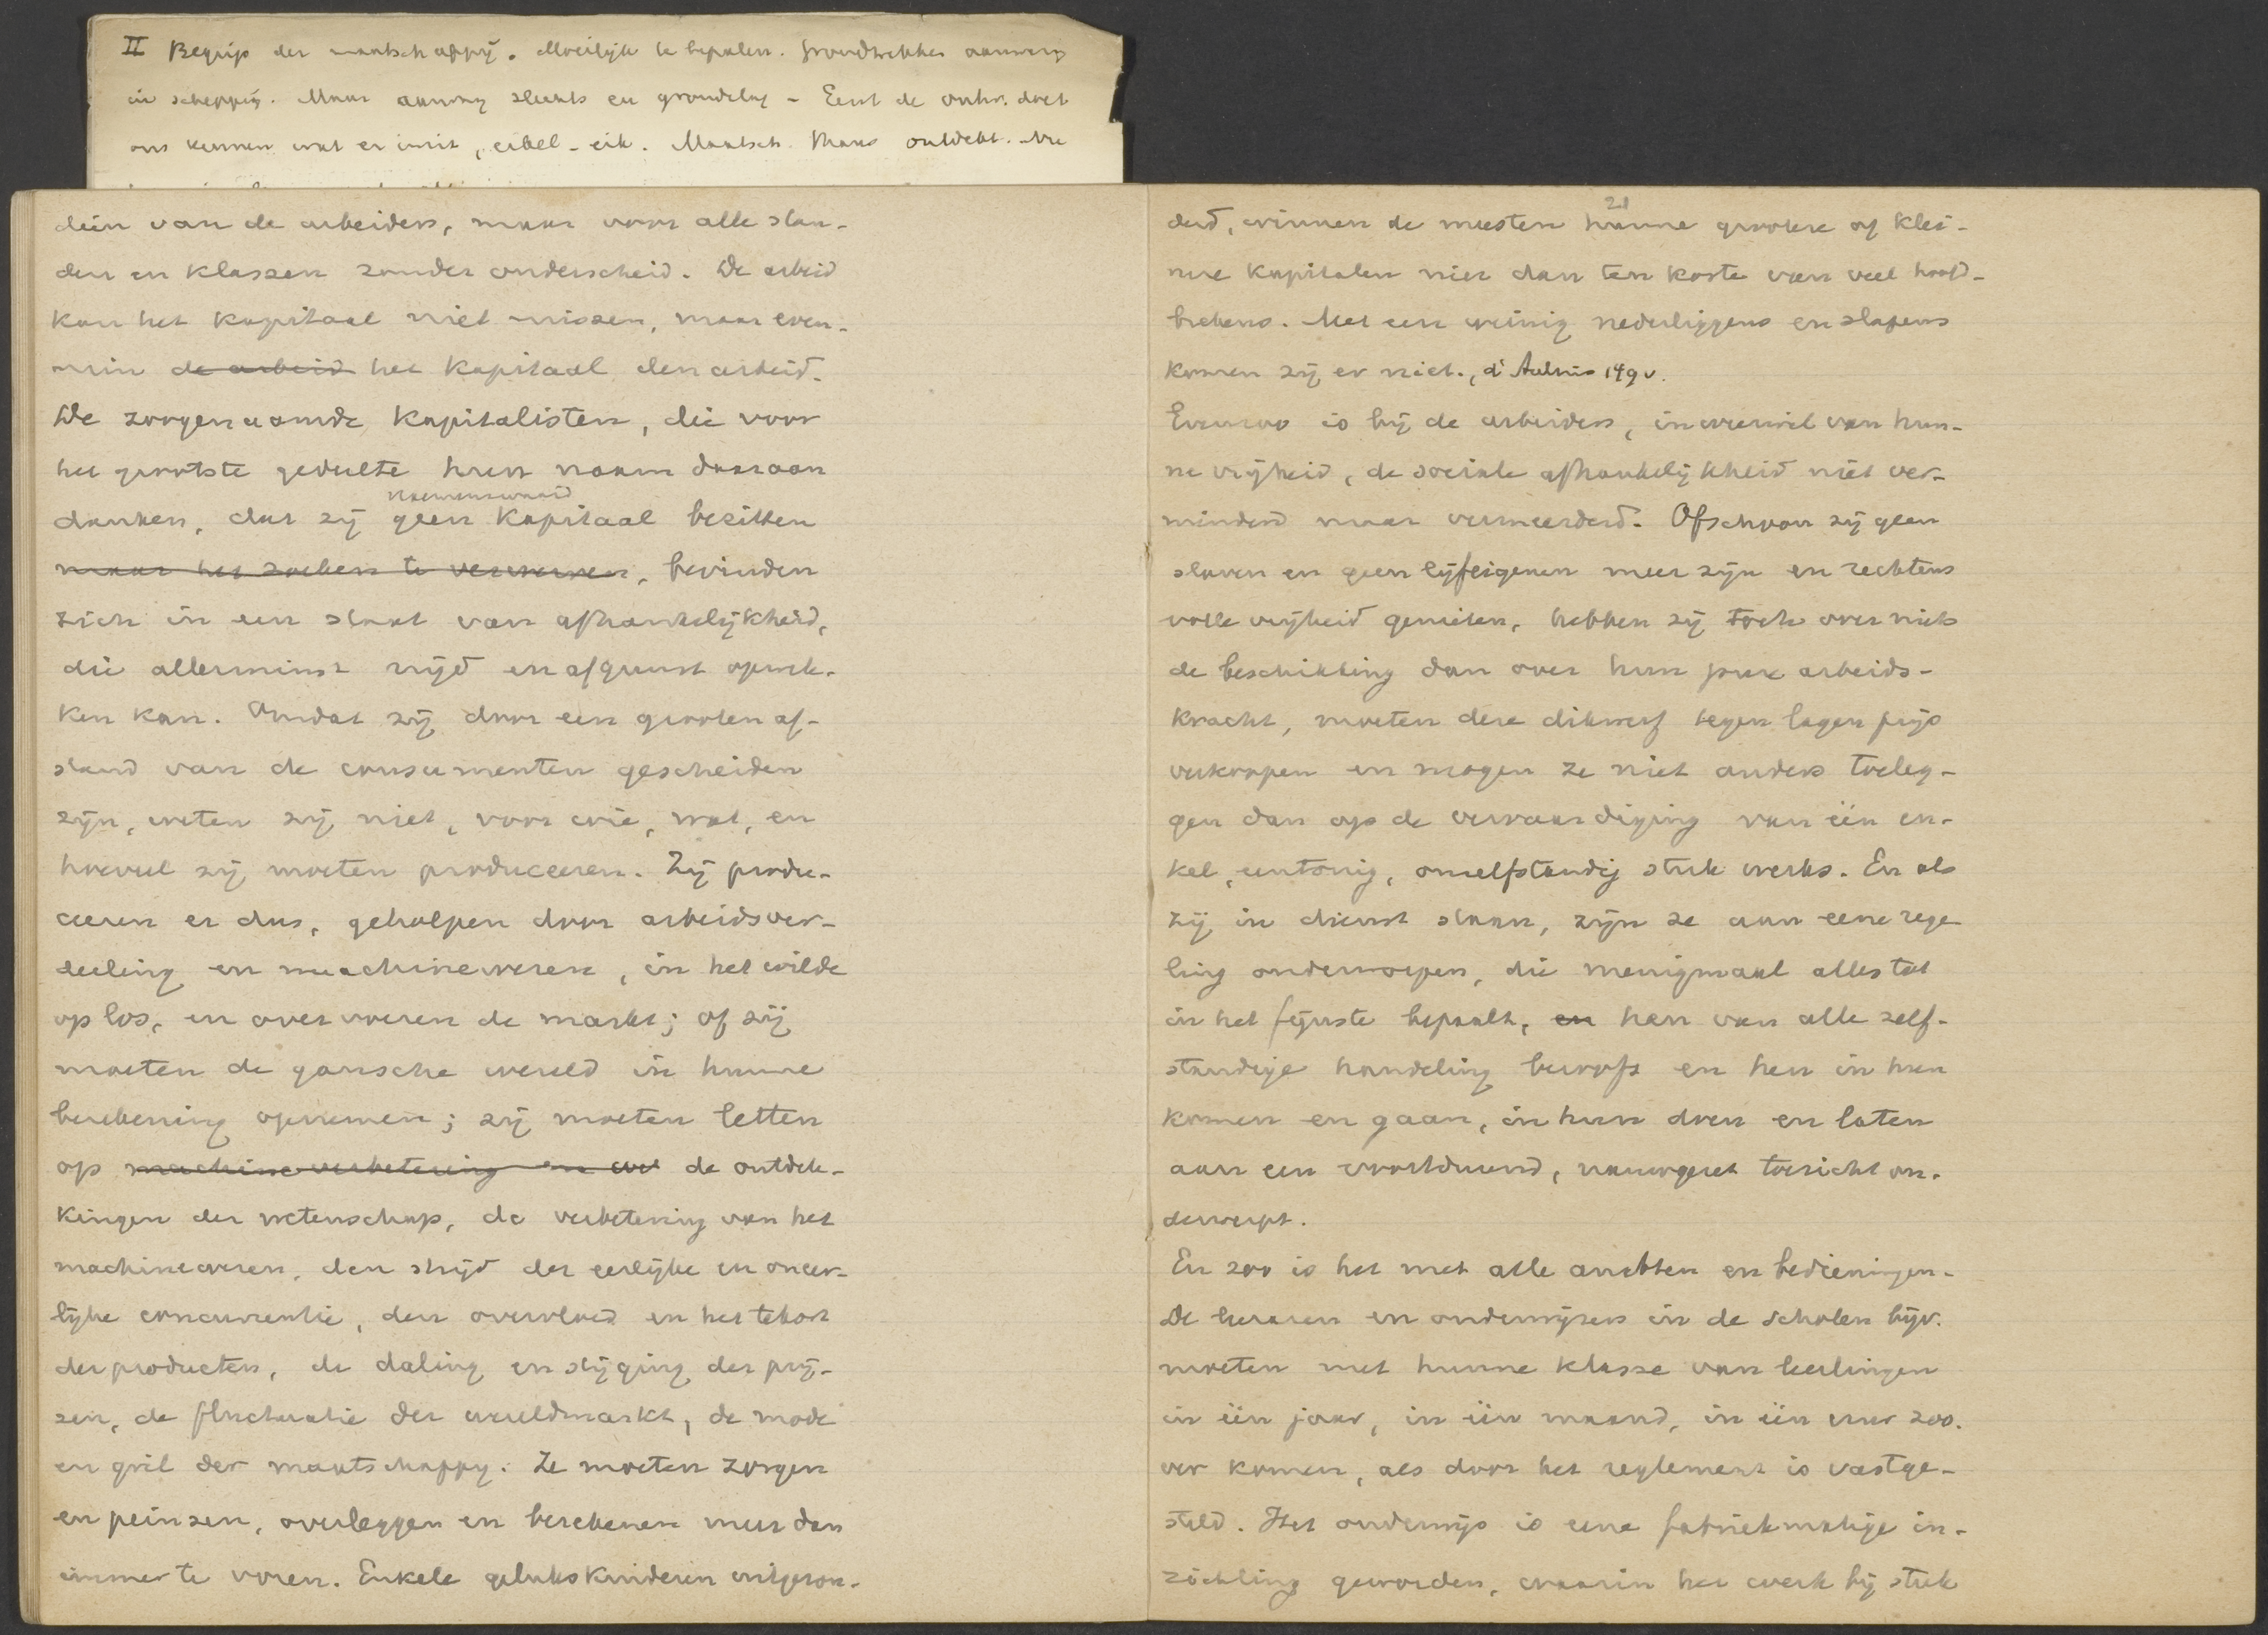 II Begrip der maatschappij. Moeilijk te bepalen. Grondtrekken aanwezig
in schepping. Maar aanweg slechts en grondslag - Eerst de ontw. doet
ons kennen wat er in zit, eikel - eik. Maatsch. Thans ontdekt. Nu
dein van de arbeiders, maar voor alle stan-
den en klassen zonder onderscheid. De arbeid
kan het kapitaal niet missen, maar even-
min de arbeid het kapitaal den arbeid.
De zoogenaamde kapitalisten, die voor
het grootste gedeelte hun naam daaraan
noemenswaard
danken, dat zij geen kapitaal bezitten
maar het zoeken te verwerven, bevinden
zich in een staat van afhankelijkheid,
die allerminst nijd en afgunst opwek-
ken kan. Omdat zij door een grooten af-
stand van de consumenten gescheiden
zijn, weten zij niet, voor wie, wat, en
hoeveel zij moeten produceeren. Zij produ-
ceeren er dus, geholpen door arbeidsver-
deeling en machinewezen, in het wilde
op los, en overvoeren de markt; of zij
moeten de gansche wereld in hunne
berekening opnemen; zij moeten letten
op machine verbetering en de ontdek-
kingen der wetenschap, de verbetering van het
machinewezen, den strijd der eerlijke en oneer-
lijke concurrentie, den overvloed en het tekort
der producten, de daling en stijging der prij-
zen, de fluctuatie der wereldmarkt, de mode
en gril der maatschappij. Ze moeten zorgen
en peinzen, overleggen en berekenen meer dan
immer te voren. Enkele gelukskinderen uitgezon-
21
derd, winnen de meesten hunne grootere of klei-
nere kapitalen niet dan ten koste van veel hoofd-
brekens. Met een weinig nederliggens en slapens
komen zij er niet., d'Aulnis 149 v.
Evenzoo is bij de arbeiders, in weerwil van hun-
ne vrijheid, de sociale afhankelijkheid niet ver-
minderd maar vermeerderd. Ofschoon zij geen
slaven en geen lijfeigenen meer zijn en rechtens
volle vrijheid genieten, hebben zij toch over niets
de beschikking dan over hun pure arbeids-
kracht, moeten deze dikwerf tegen lagen prijs
verkoopen en mogen ze niet anders toeleg-
gen dan op de vervaardiging van één en-
kel, eentonig, onzelfstandig stuk werks. En als
zij in dienst staan, zijn ze aan eene rege
ling onderworpen, die menigmaal alles tot
in het fijnste bepaalt, en hen van alle zelf-
standige handeling berooft en hen in hun
komen en gaan, in hun doen en laten
aan een voortdurend, nauwgezet toezicht on-
derwerpt.
En zoo is het met alle ambten en bedieningen.
De leeraren en onderwijzers in de scholen bijv.
moeten met hunne klasse van leerlingen
in één jaar, in één maand, in één uur zoo.
ver komen, als door het reglement is vastge-
steld. Het onderwijs is eene fabriekmatige in-
richting geworden, waarin het werk bij stuk